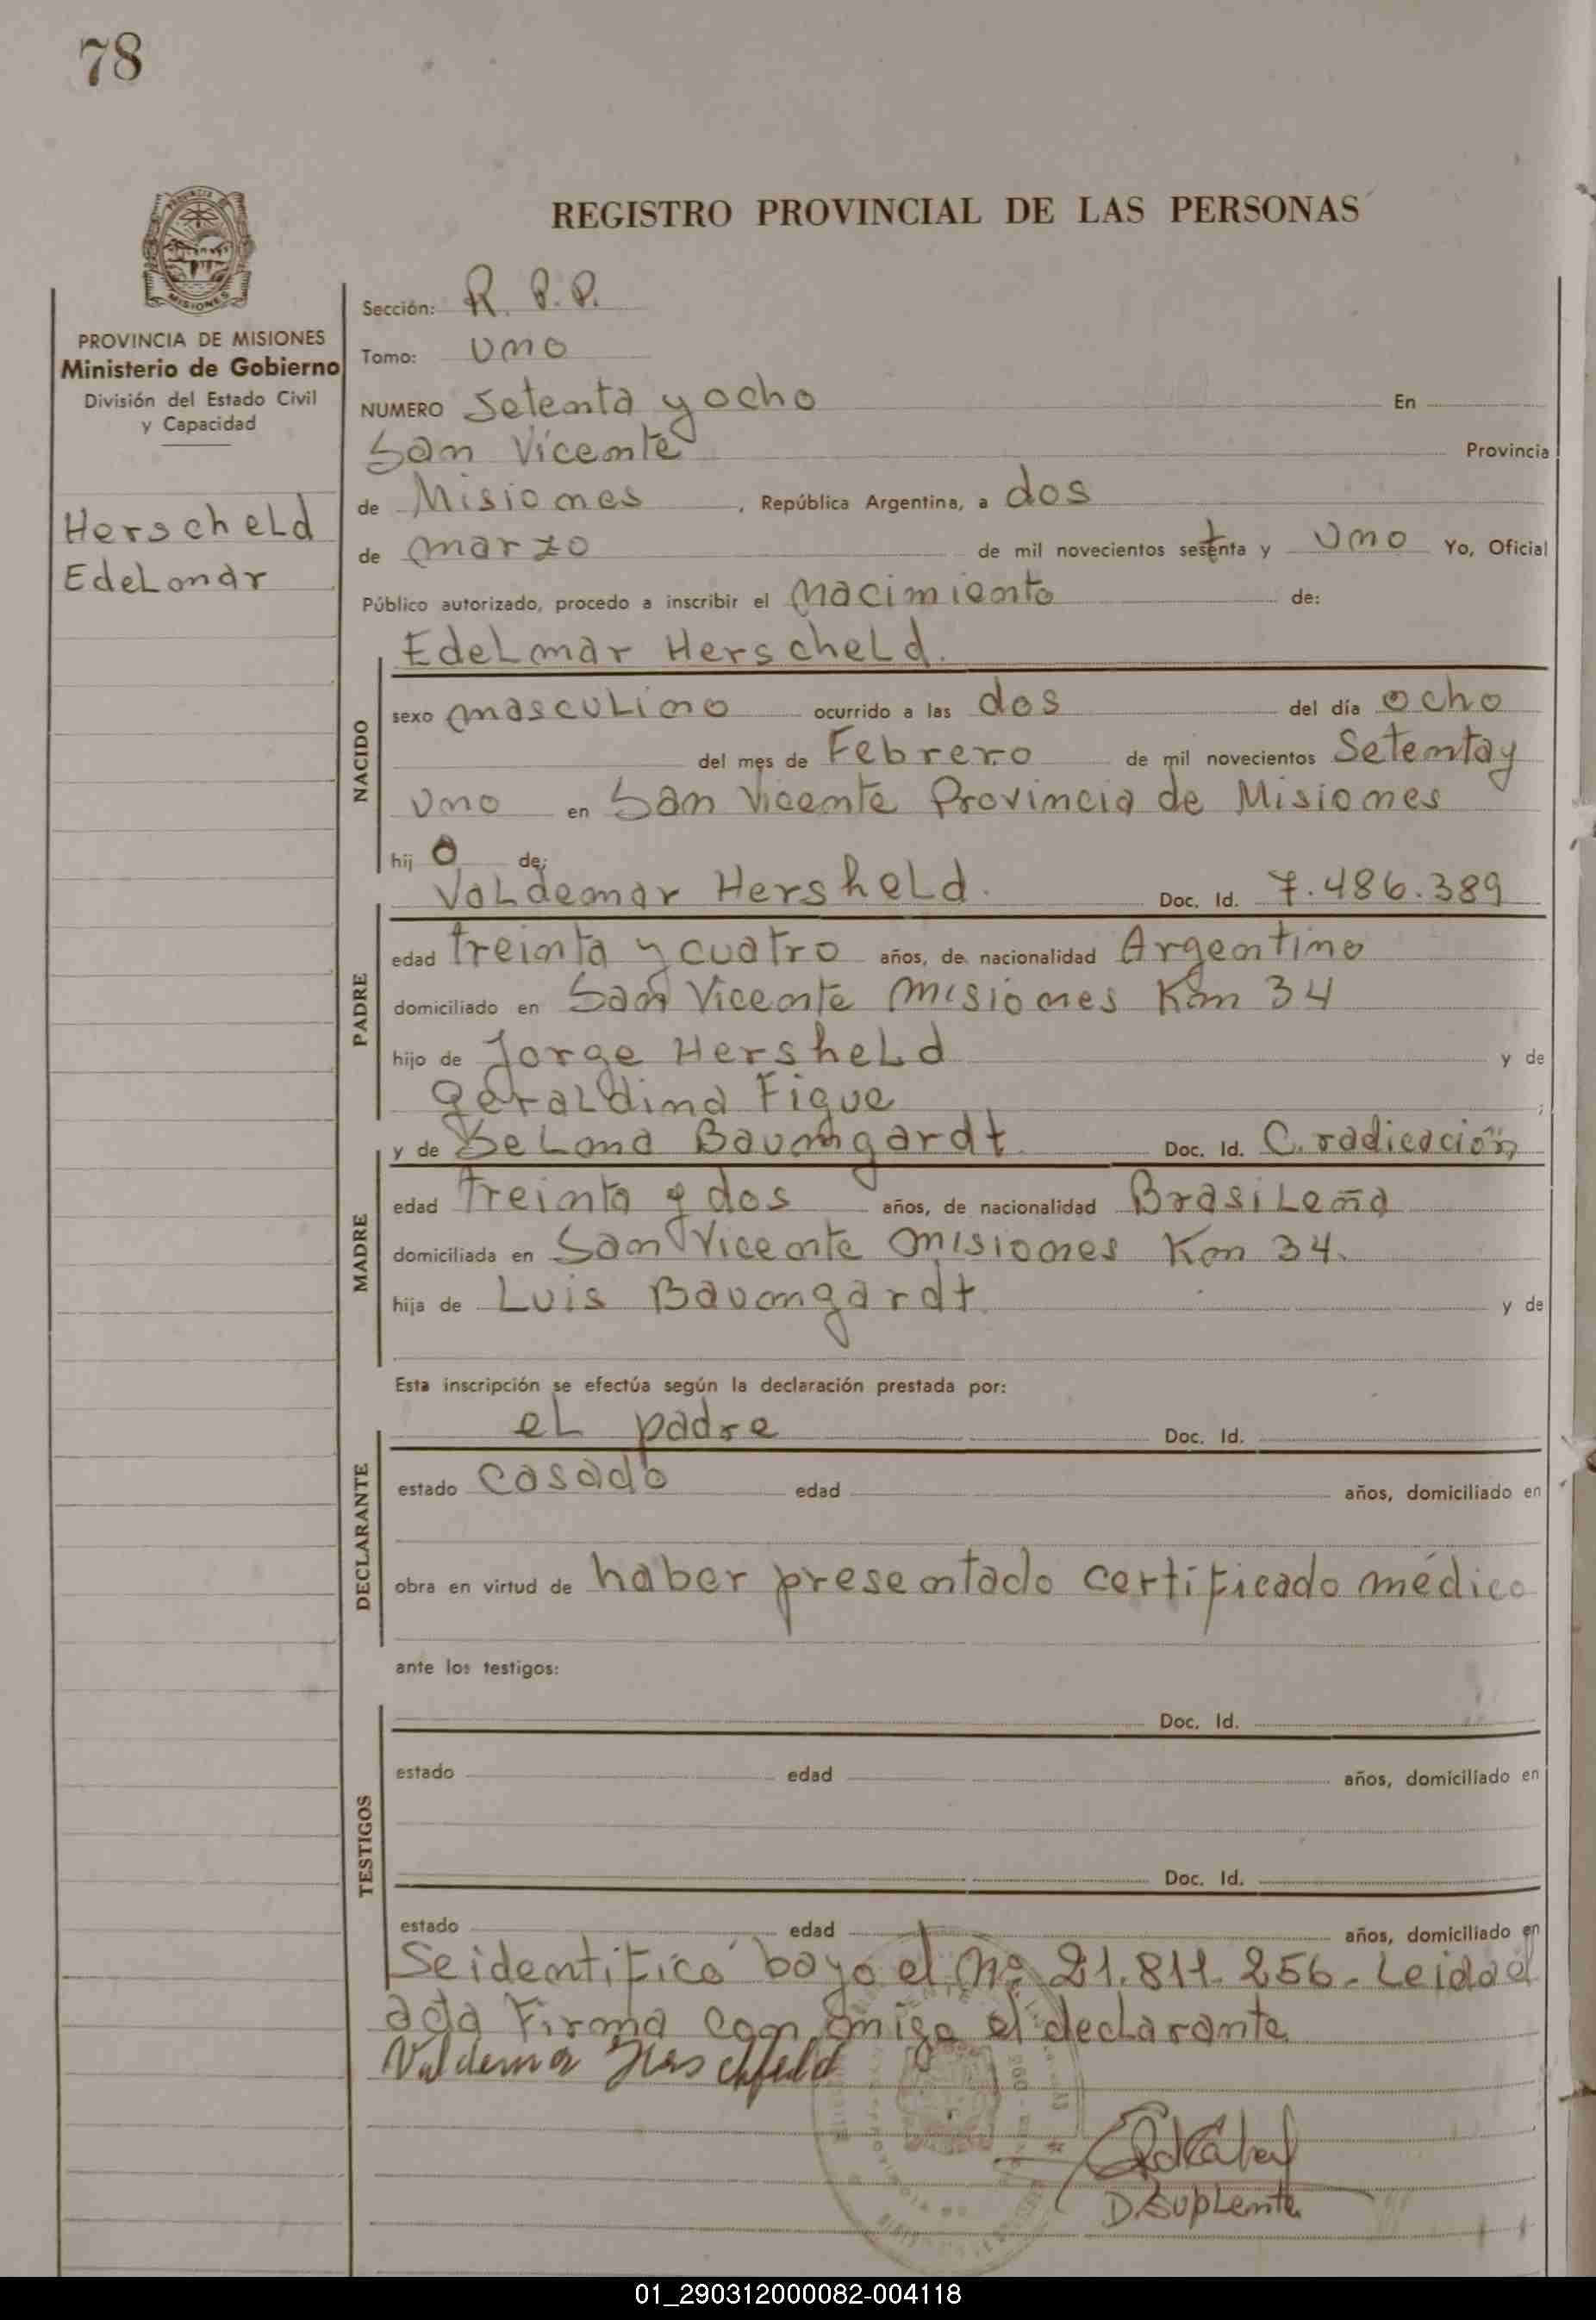 78
REGISTRO PROVINCIAL DE LAS PERSONAS
MISIONES
PROVINCIA DE MISIONES
Ministerio de Gobierno
División del Estado Civil
y Capacidad
Herscheld
Edelmar
Sección: R. P. P.
Tomo: Uno
NUMERO Setenta y ocho En
San Vicente Provincia
de Misiones, República Argentina, a dos
de marzo de mil novecientos setenta y Uno Yo, Oficial
Público autorizado, procedo a inscribir el nacimiento de:
Edelmar Herscheld.
NACIDO
sexo masculino ocurrido a las dos del día ocho
del mes de Febrero de mil novecientos Setenta y
Uno en San Vicente Provincia de Misiones
hij o de:
Valdemar Hersheld. Doc. Id. 7.486.389
PADRE
edad treinta y cuatro años, de nacionalidad Argentino
domiciliado en San Vicente Misiones Km 34
hijo de Jorge Hersheld y de
Geraldina Figue ;
y de Baumgardt Doc. Id. C. radicación
MADRE
edad treinta y dos años, de nacionalidad Brasileña
domiciliada en San Vicente Misiones Km 34.
hija de Luis Baumgardt y de
Esta inscripción se efectúa según la declaración prestada por:
el padre Doc. Id.
DECLARANTE
estado Casado edad años, domiciliado en
obra en virtud de haber presentado certificado médico
ante los testigos:
Doc. Id.
TESTIGOS
estado edad años, domiciliado en
Doc. Id.
estado edad años, domiciliado en
Se identificó bajo el Nº 21.811.256. Leida el
acta Firma conmigo el declarante
Valdemar Herschfeld
D. Suplente
01_290312000082-004118